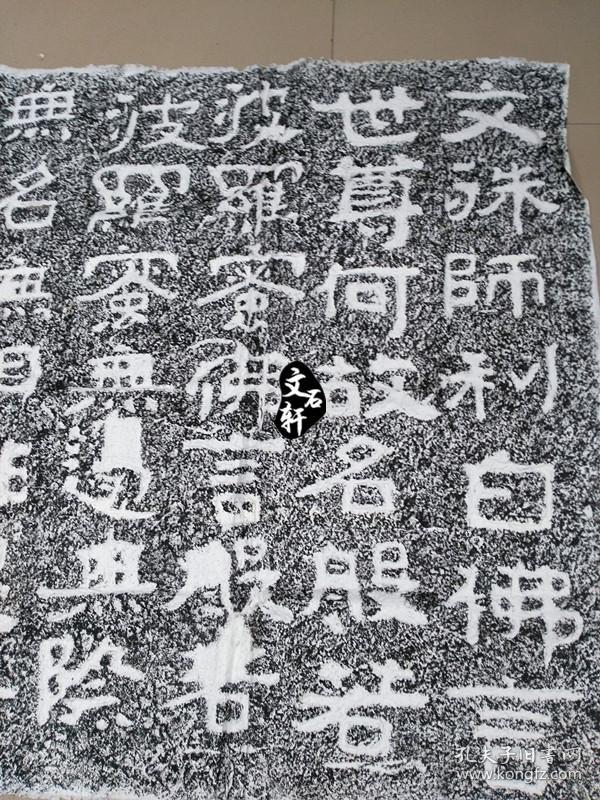 文殊師利白佛言
世尊何故名般若
波羅蜜佛言般若
波羅蜜無邊無際
無名無
文石轩
孔夫子旧书网
www.kongfz.com